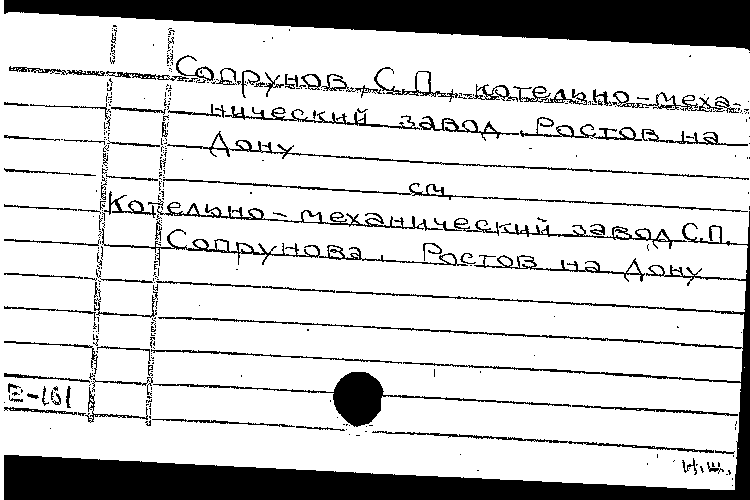 Сопрунов, С.П., котельно-меха-
нический завод, Ростов на
Дону
см.
Котельно-механический завод С.П.
Сопрунова. Ростов на Дону
Е-161